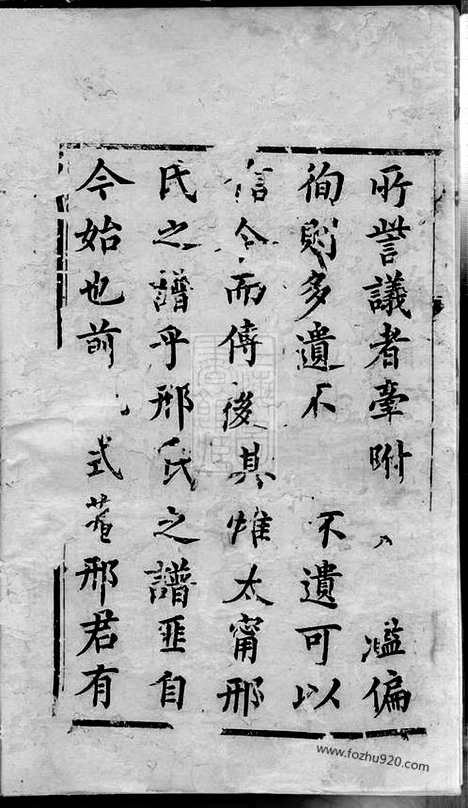 所訾議者牽附 濫偏
徇則多遺不 不遺可以
信今而傳後其惟太甯邢
氏之譜乎邢氏之譜匪自
今始也前 式菴邢君有
www.fozhu920.com